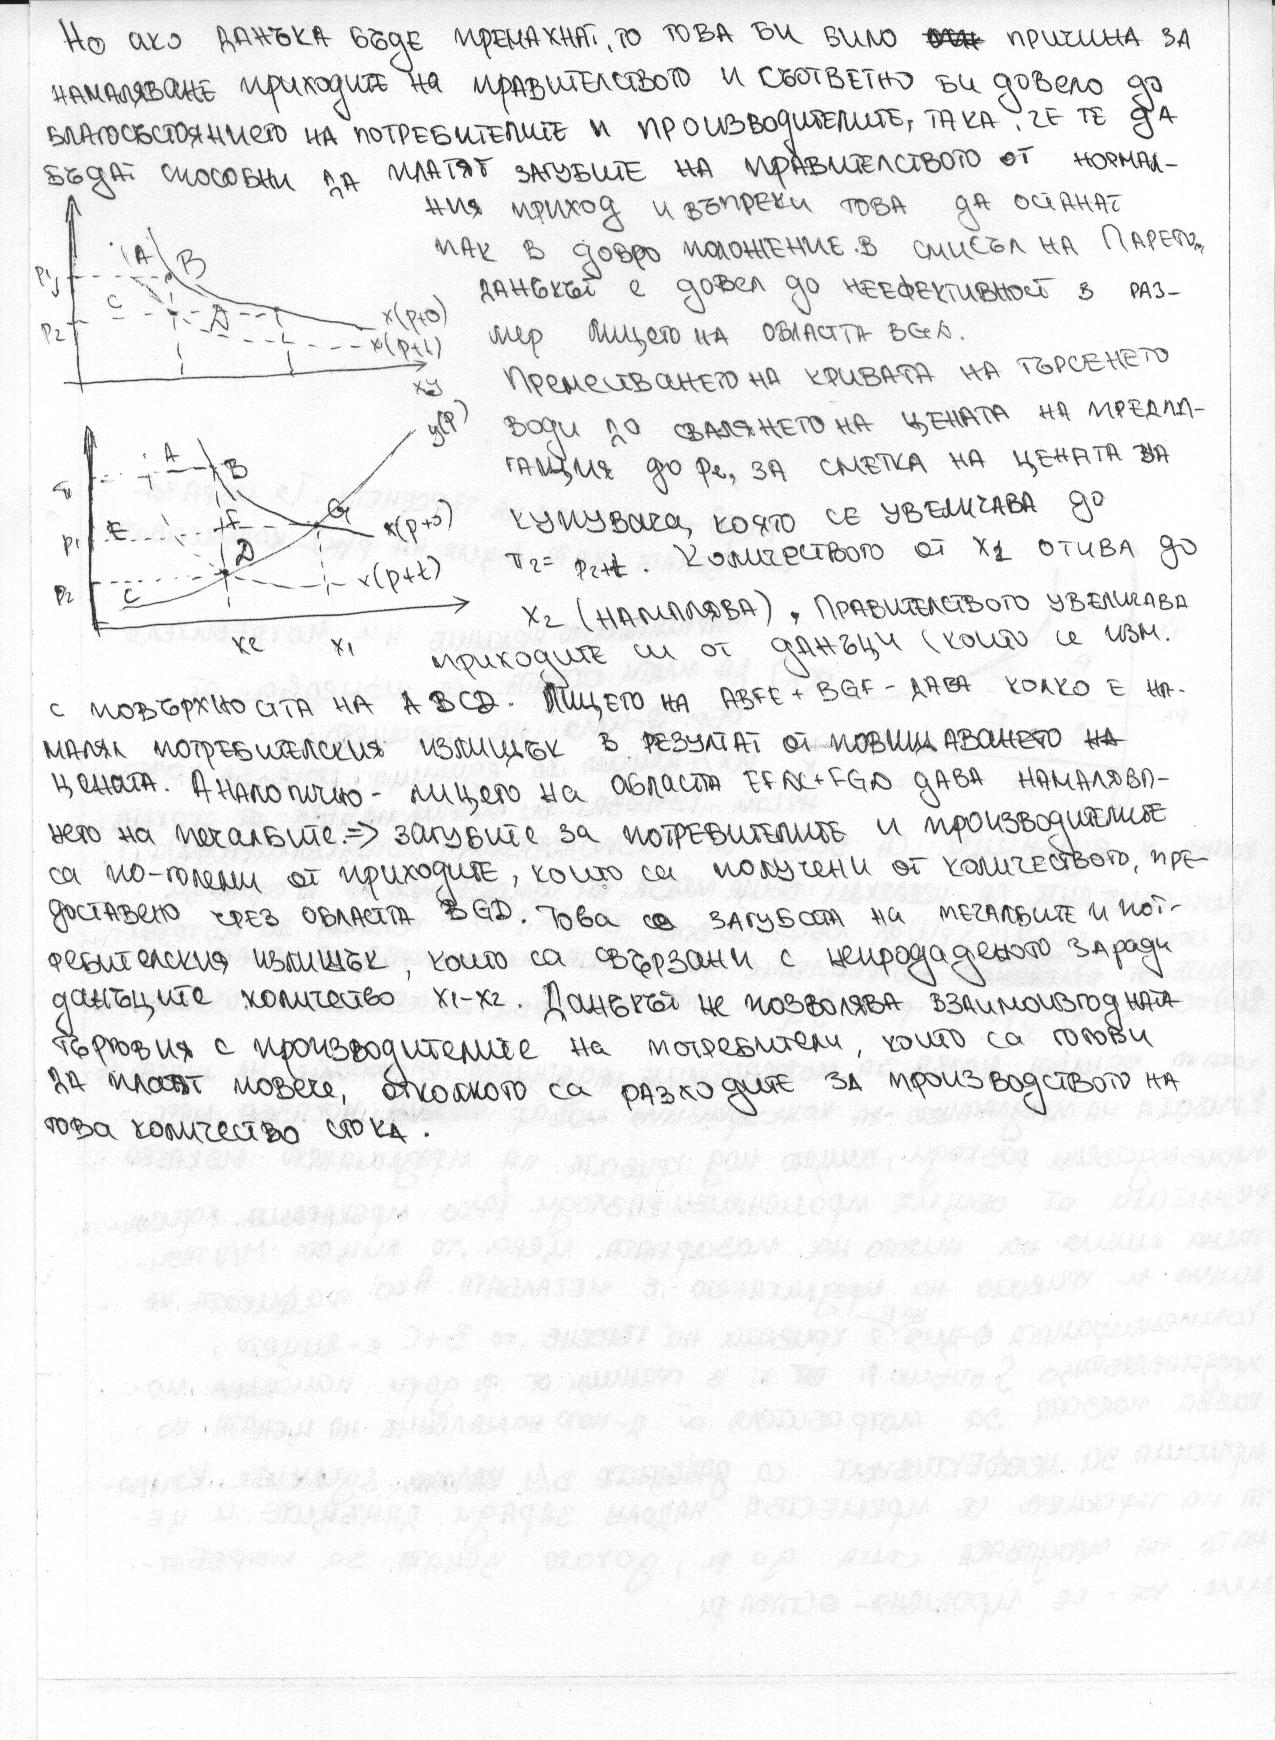 Но ако данъка бъде премахнат, то това би било причина за
намаляване приходите на правителството и съответно би довело до
благосъстоянието на потребителите и производителите, така, че те да
бъдат способни да платят загубите на правителството от нормал-
ния приход и въпреки това да останат
пак в добро положение. В смисъл на Парето,
данъкът е довел до неефективност в раз-
мер лицето на областа BGD.
P1 A B
C D
P2
x(p+0)
x(p+t)
xy
Преместването на кривата на търсенето
води до свалянето на цената на предла-
гания до P2, за сметка на цената на
купувача, която се увеличава до
π2= P2+t. Количеството от x1 отива до
x2 (намалява). Правителството увеличава
приходите си от данъци (които се изм.
y(p)
A B
E F G x(p+0)
P1
D x(p+t)
P2 C
x2 x1
с повърхността на ABCD. Лицето на ABFE + BGF - дава колко е на-
малял потребителския излишък в резултат от повишаването на
цената. Аналогично - лицето на областа EFDC+FGD дава намаля-
нето на печалбите. => загубите за потребителите и производителите
са по-големи от приходите, които са получени от количеството, пре-
доставено чрез областа BGD. Това са загубата на печалбите и пот-
ребителския излишък, които са свързани с непродаденото заради
данъците количество x1-x2. Данъкът не позволява взаимоизгодната
търговия с производителите на потребители, които са готови
да платят повече, отколкото са разходите за производството на
това количество стока.